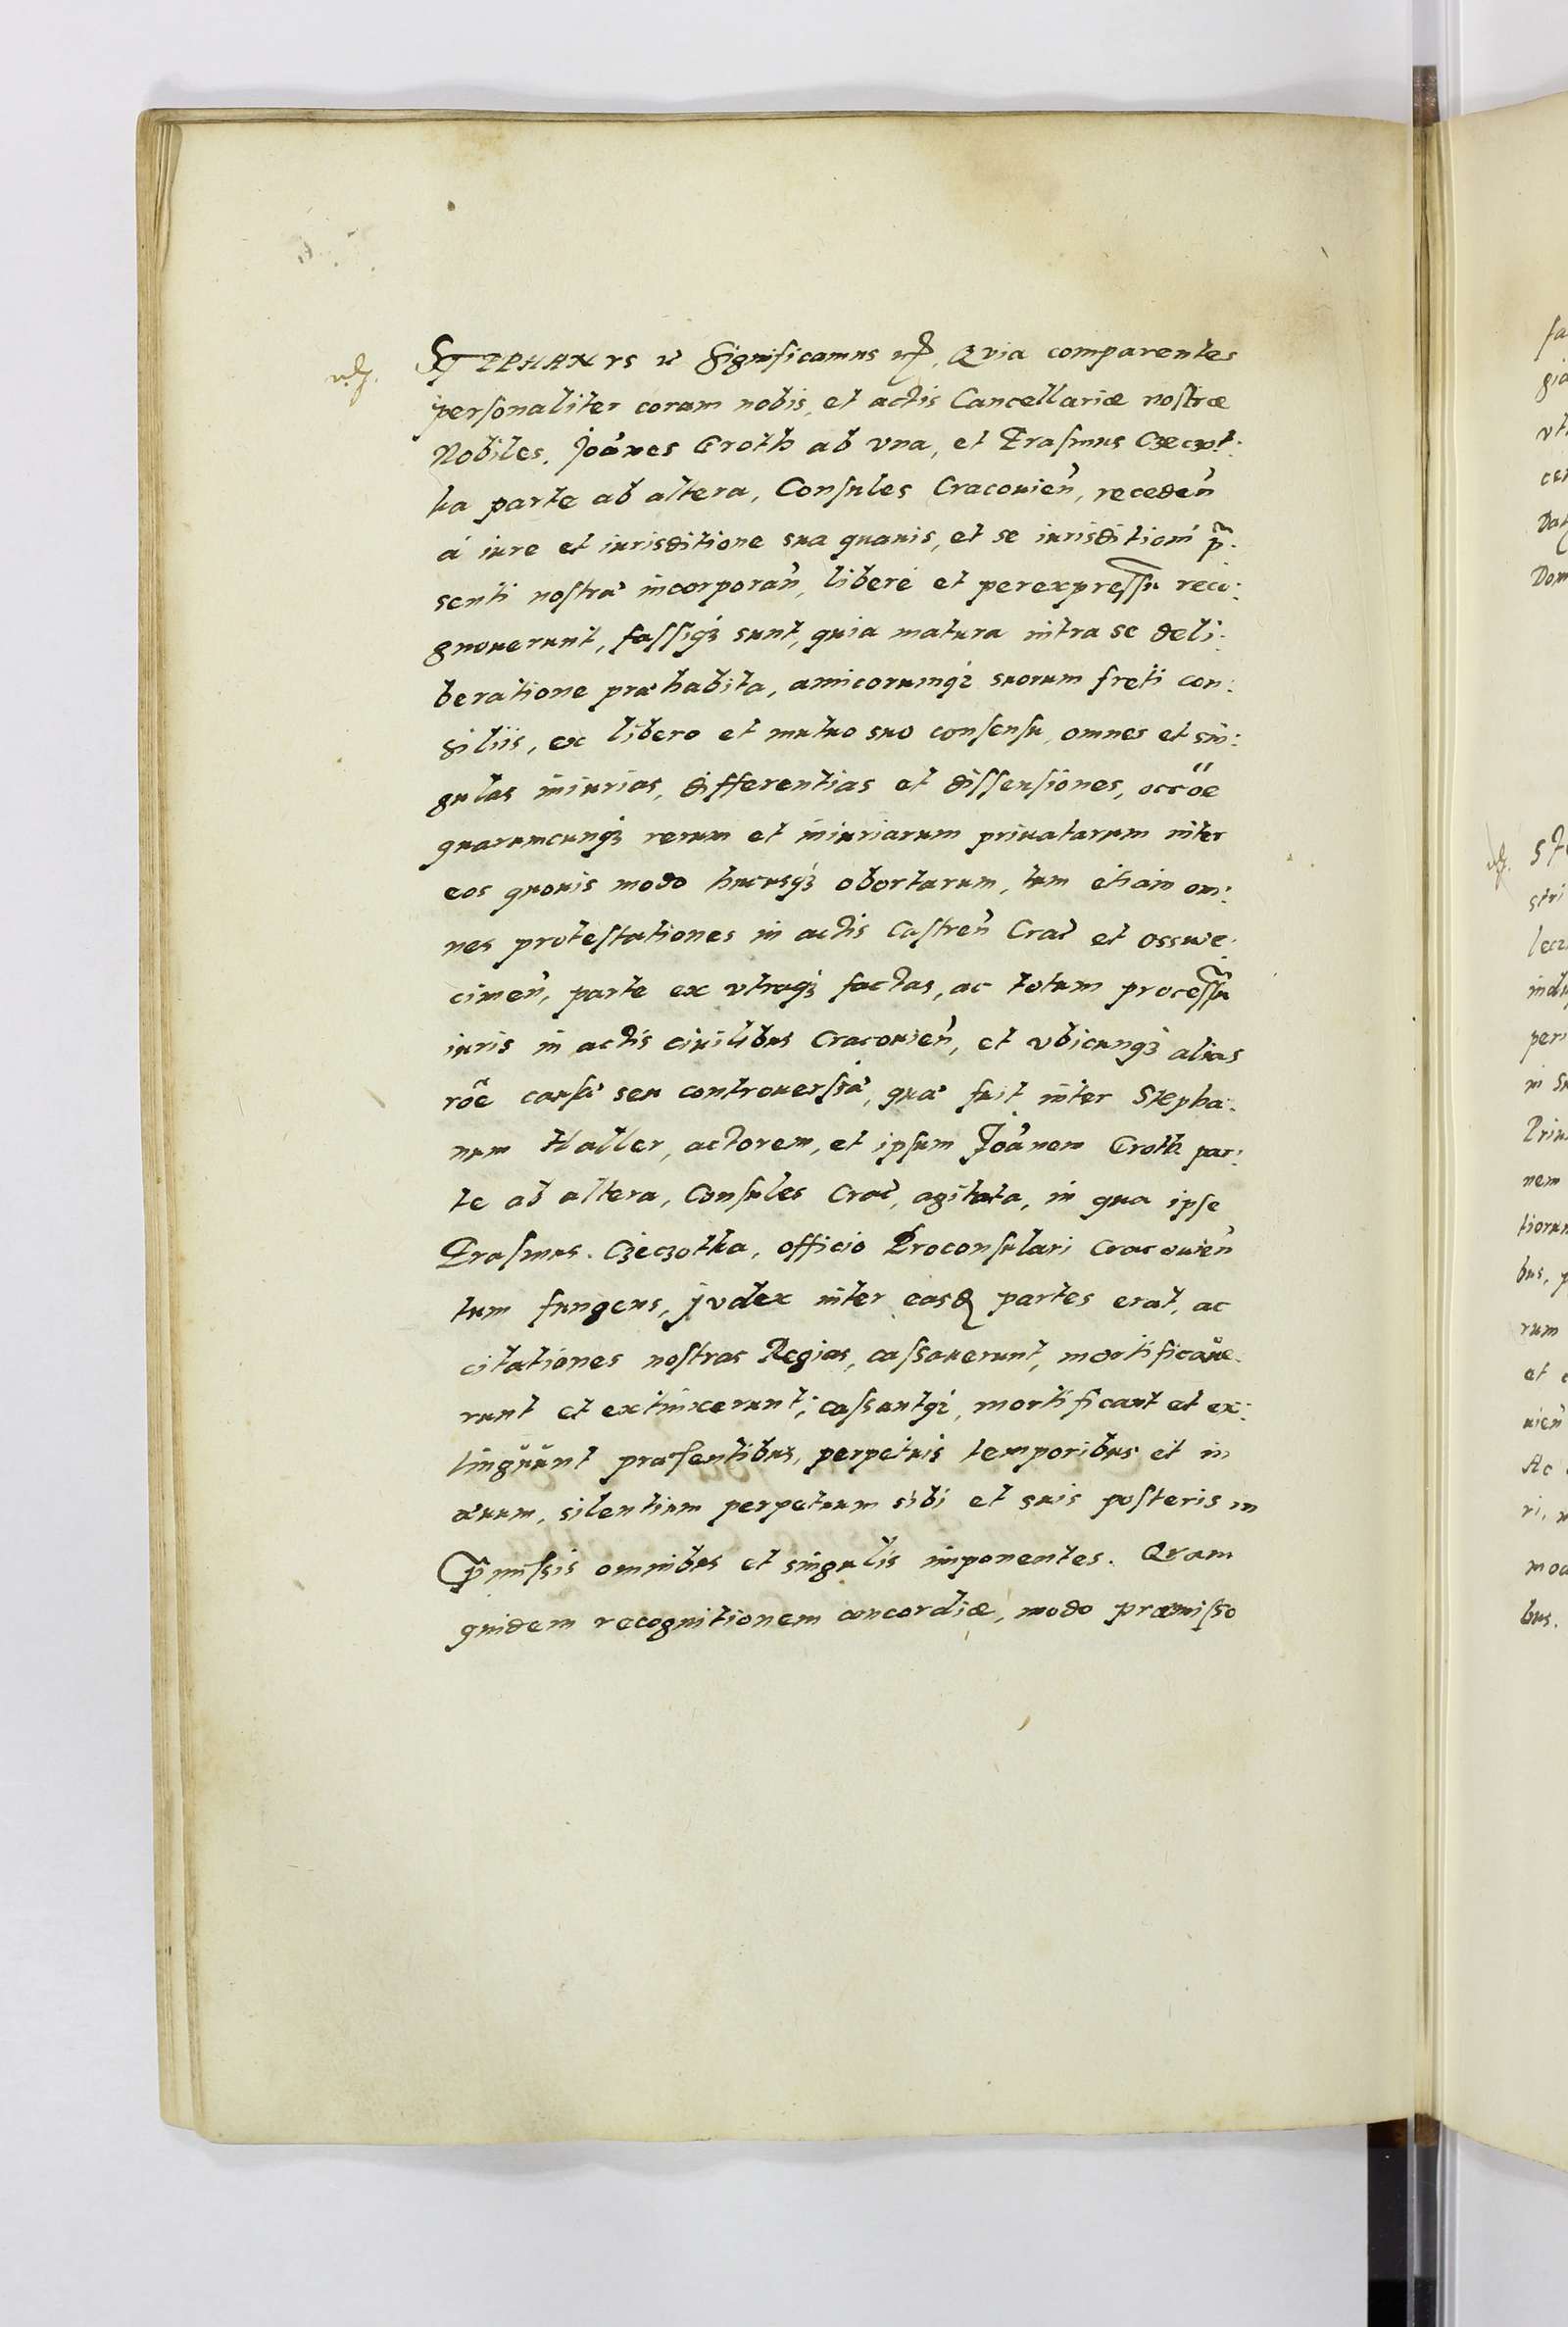 STEPHANVS etc Significamus etc. Qvia comparentes
personaliter coram nobis, et actis Cancellariæ nostræ
Nobiles, Joañes Croth ab vna, et Erasmus Czeczot:
ka parte ab altera, Consules Cracouień, recedeń
à iure et iurisditione sua quauis, et se iurisditioni p̃:
senti nostræ incorporań, liberè et per expressũ reco:
gnouerunt, fassiq3 sunt, quia matura intra se deli:
beratione præhabita, amicorumq3 suorum freti con:
siliis, ex libero et mutuo suo consensu, omnes et sin:
gulas iniurias, differentias et dissensiones, occõe
quarumcunq3 rerum et iniuriarum priuatarum inter
eos quouis modo hucusq3 obortarum, tum etiam om:
nes protestationes in actis Castreń Crac et osswie:
cimeń, parte ex vtraq3 factas, ac totum processũ
iuris in actis ciuilibus Cracouień, et vbicunq3 alias
rõe causæ seu controuersiæ, quæ fuit inter Stepha:
num Haller, actorem, et ipsum Joañem Croth par:
te ab altera, Consules Crac, agitata, in qua ipse
Erasmus Czeczotka, officio Proconsulari Cracouień
tum fungens, judex inter easdem partes erat, ac
citationes nostras Regias, cassauerunt, mortificaue:
runt et extinxerunt; cassantq3, mortificant et ex:
tingũunt præsentibus, perpetuis temporibus et in
æuum, silentium perpetuum sibi et suis posteris in
p̃missis omnibus et singulis imponentes. Qvam
quidem recognitionem concordiæ, modo præmisso